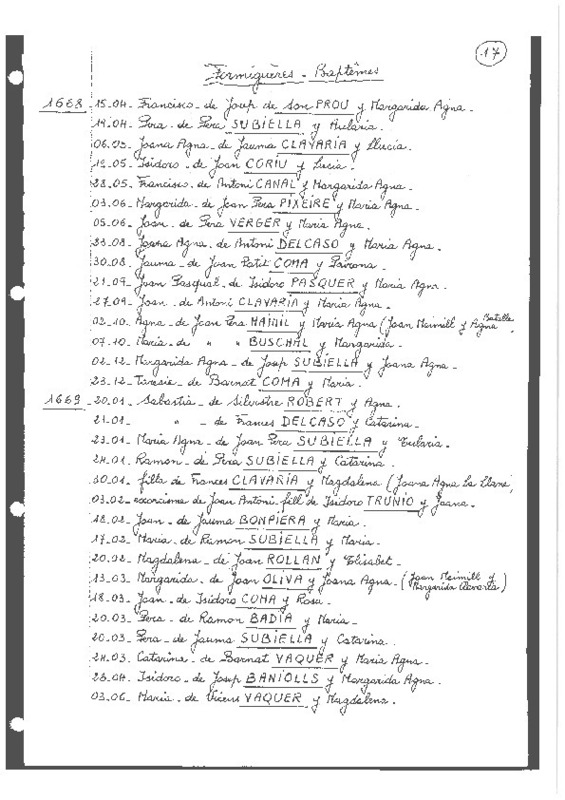 17
Formiguères - Baptêmes
1668 - 15.04 - Francisco - de Josep de Son PROU y Margarida Agna.
19.04 - Pera - de Pera SUBIELLA y Aularia.
06.05 - Joana Agna - de Jauma CLAVARIA y Llucia.
19.05 - Isidoro - de Joan CORIU y Lucia.
28.05 - Francisco - de Antoni CANAL y Margarida Agna.
03.06 - Margarida - de Joan Pera PIXEIRE y Maria Agna.
05.06 - Joan - de Pera VERGER y Maria Agna.
23.08 - Joana Agna - de Antoni DELCASO y Maria Agna.
30.08 - Jauma - de Joan Petit COMA y
21.09 - Joan Pasqual - de Isidoro PASQUER y Maria Agna.
27.09 - Joan - de Antoni CLAVARIA y Maria Agna.
03.10 - Agna - de Joan Pera y Maria Agna (Joan y Agna Batalla,
07.10 - Maria - de " " BUSCHAL y Margarida -
02.12 - Margarida Agna - de Josep SUBIELLA y Joana Agna -
23.12 - Taresia - de Barnat COMA y Maria.
1669 - 20.01 - Sabastia - de Silvestre ROBERT y Agna.
21.01 - " - de Frances DELCASO y Catarina -
23.01 - Maria Agna - de Joan Pera SUBIELLA y Eularia -
24.01 - Ramon - de Pera SUBIELLA y Catarina -
30.01 - filla de Frances CLAVARIA y Magdalena (Joana Agna La Llane,
03.02 - exorcisme de Joan Antoni - fill de Isidoro TRUNIO y Joana.
18.02 - Joan - de Jauma BONPIERA y Maria -
17.02 - Maria - de Ramon SUBIELLA y Maria -
20.02 - Magdalena - de Joan ROLLAN y Elisabet -
13.03 - Margarida - de Joan OLIVA y Joana Agna - (Joan y Margarida Clavaria)
18.03 - Joan - de Isidoro COMA y Rosa -
20.03 - Pera - de Ramon BADIA y Maria -
20.03 - Pera - de Jauma SUBIELLA y Catarina.
24.03 - Catarina - de Barnat VAQUER y Maria Agna -
28.04 - Isidoro - de Josep BANIOLLS y Margarida Agna.
03.06 - Maria - de Vicens VAQUER y Magdalena.